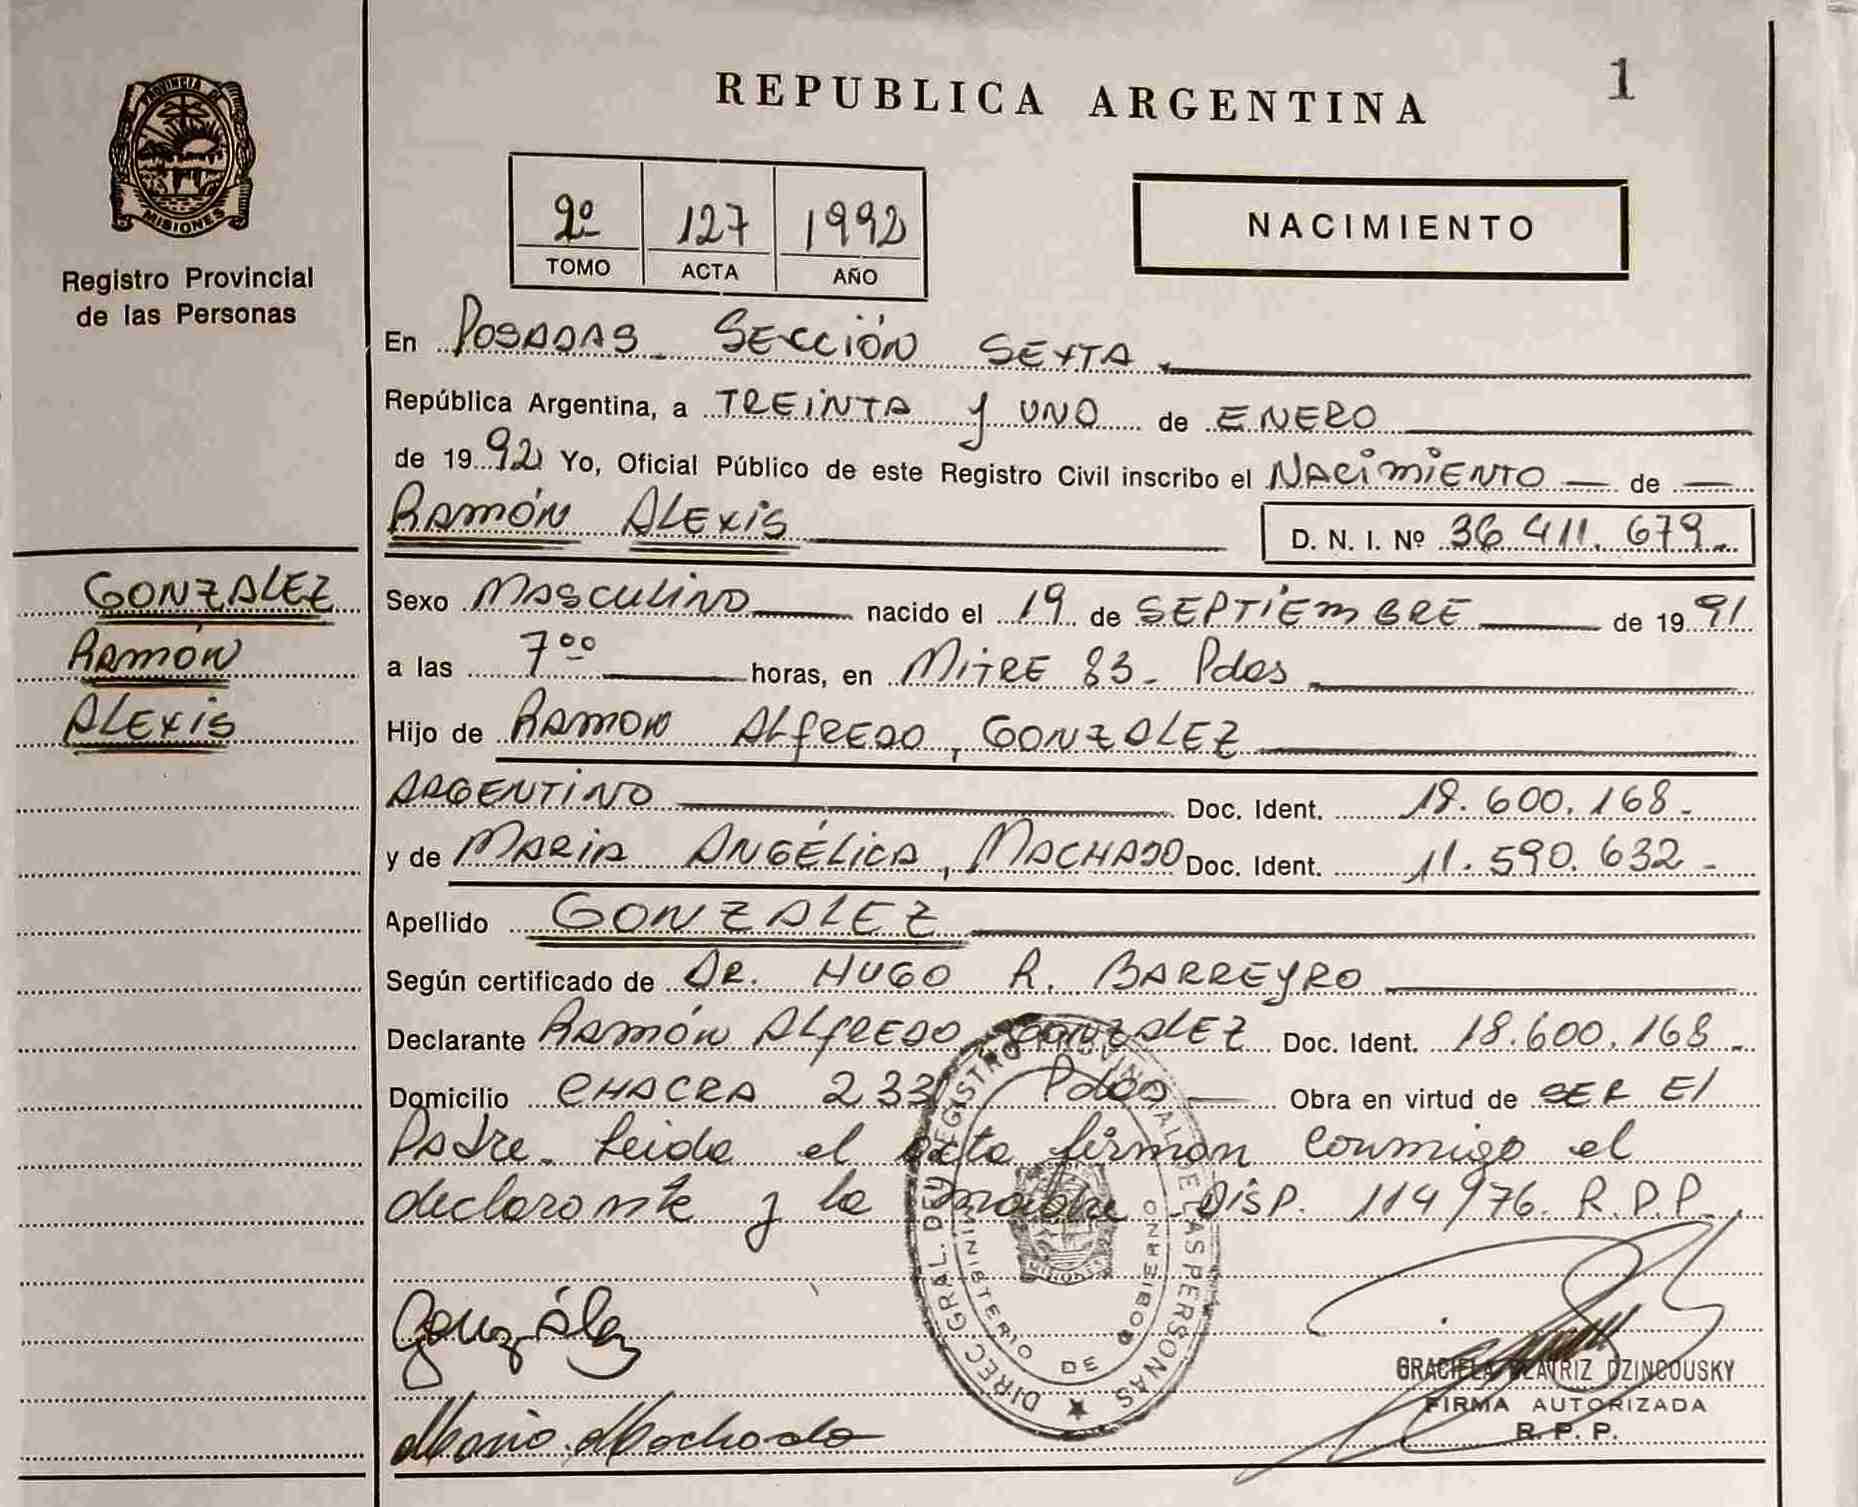 REPUBLICA ARGENTINA
1
PROVINCIA DE
MISIONES
Registro Provincial
de las Personas
2º 127 1992
TOMO ACTA AÑO
NACIMIENTO
En POSADAS SECCIÓN SEXTA.
República Argentina, a TREINTA y UNO de ENERO
de 1992 Yo, Oficial Público de este Registro Civil inscribo el NACIMIENTO — de —
RAMÓN ALEXIS
D. N. I. Nº 36.411.679.-
GONZALEZ
RAMÓN
ALEXIS
Sexo MASCULINO nacido el 19 de SEPTIEMBRE de 1991
a las 7ºº horas, en MITRE 83- Pdas
Hijo de RAMON ALfREDO, GONZALEZ
ARGENTINO Doc. Ident. 18.600.168.-
y de MARIA ANGÉLICA, MACHADO Doc. Ident. 11.590.632.-
Apellido GONZALEZ
Según certificado de DR. HUGO R. BARREYRO
Declarante RAMÓN ALfREDO GONZALEZ Doc. Ident. 18.600.168.-
Domicilio CHACRA 233 Pdas — Obra en virtud de SER El
Padre. Leida el acta firman conmigo el
declarante y la madre DISP. 114/76. R.P.P.
DIREC. GRAL. DEL REGISTRO PROVINCIAL DE LAS PERSONAS
MINISTERIO DE GOBIERNO
MISIONES
González
GRACIELA BEATRIZ DZINCOUSKY
FIRMA AUTORIZADA
R. P. P.
Maria Machado